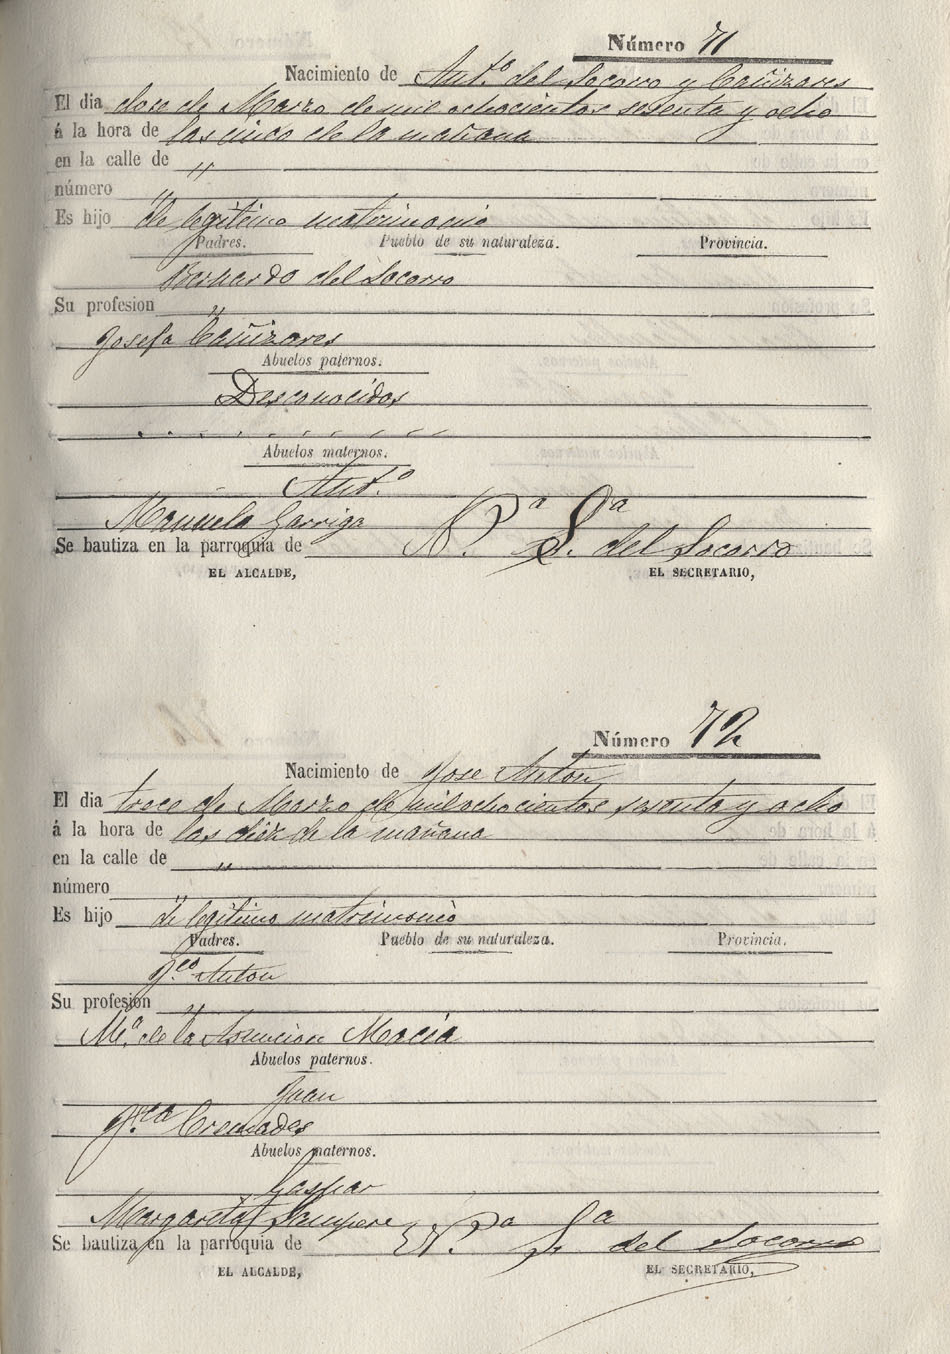 Número 71
Nacimiento de Antº del Socorro y Cañizares
El dia doce de Marzo de mil ochocientos sesenta y ocho
á la hora de las cinco de la mañana
en la calle de "
número "
Es hijo de legitimo matrimonio
Padres. Pueblo de su naturaleza. Provincia.
Bernardo del Socorro
Su profesion "
Josefa Cañizares
Abuelos paternos.
Desconocidos
Abuelos maternos.
Antº
Manuela Garriga
Se bautiza en la parroquia de Nª Sª del Socorro
EL ALCALDE, EL SECRETARIO,
Número 72
Nacimiento de Jose Anton
El dia trece de Marzo de mil ochocientos sesenta y ocho
á la hora de las diez de la mañana
en la calle de "
número "
Es hijo de legitimo matrimonio
Padres. Pueblo de su naturaleza. Provincia.
Fco Anton
Su profesion "
Mª de la Asuncion Macia
Abuelos paternos.
Juan
Fca Cremades
Abuelos maternos.
Gaspar
Margarita Sempere
Se bautiza en la parroquia de Nª Sª del Socorro
EL ALCALDE, EL SECRETARIO,